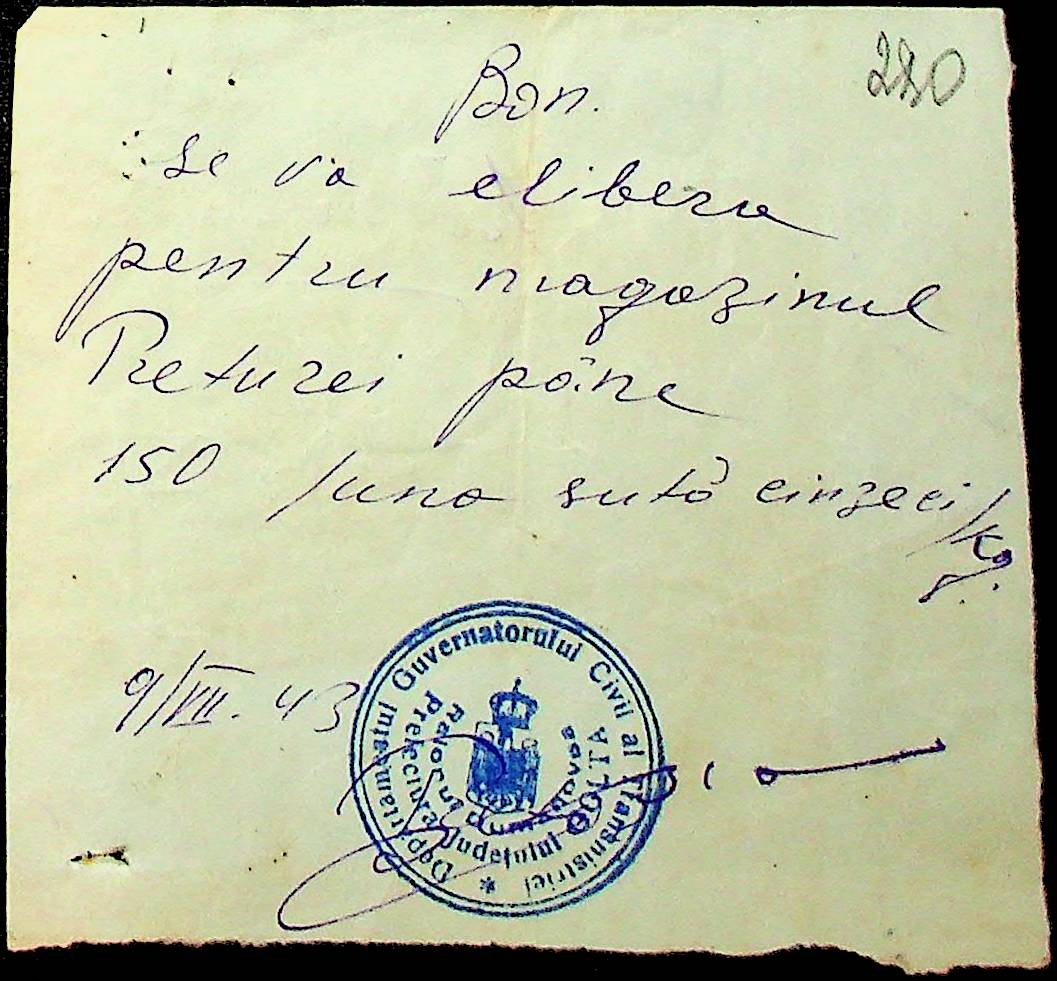 280
Bon.
Se va elibera
pentru magazinul
Preturei pâne
150 /una sută cinzeci/ kg.
9/VII. 43
Departamentul Guvernatorului Civil al Transnistriei
Prefectura Județului
Raionul